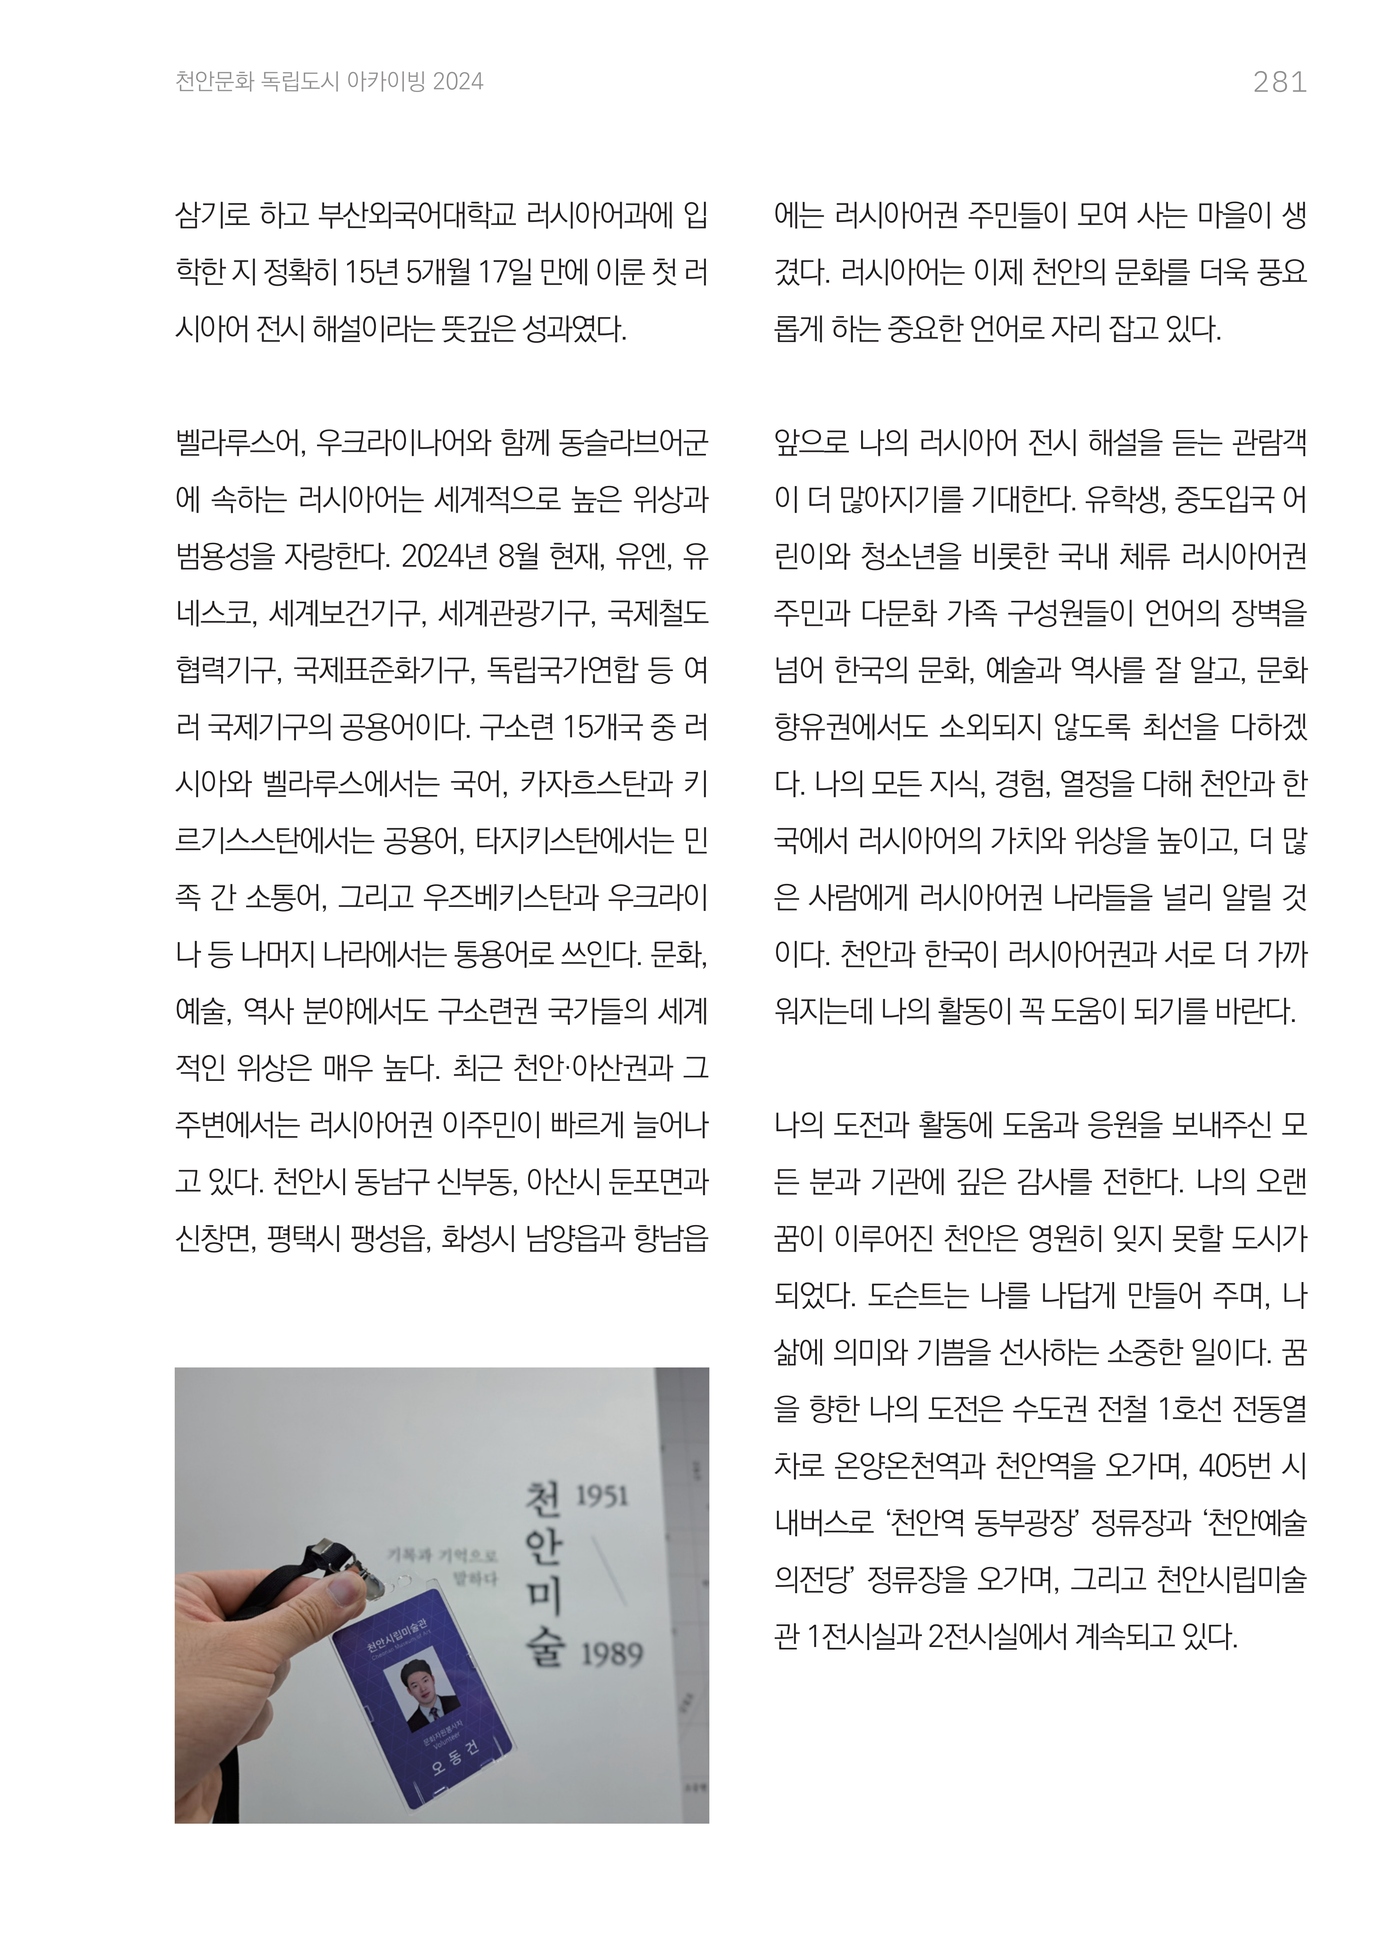 천안문화 독립도시 아카이빙 2024
281
삼기로 하고 부산외국어대학교 러시아어과에 입
학한 지 정확히 15년 5개월 17일 만에 이룬 첫 러
시아어 전시 해설이라는 뜻깊은 성과였다.
벨라루스어, 우크라이나어와 함께 동슬라브어군
에 속하는 러시아어는 세계적으로 높은 위상과
범용성을 자랑한다. 2024년 8월 현재, 유엔, 유
네스코, 세계보건기구, 세계관광기구, 국제철도
협력기구, 국제표준화기구, 독립국가연합 등 여
러 국제기구의 공용어이다. 구소련 15개국 중 러
시아와 벨라루스에서는 국어, 카자흐스탄과 키
르기스스탄에서는 공용어, 타지키스탄에서는 민
족 간 소통어, 그리고 우즈베키스탄과 우크라이
나 등 나머지 나라에서는 통용어로 쓰인다. 문화,
예술, 역사 분야에서도 구소련권 국가들의 세계
적인 위상은 매우 높다. 최근 천안·아산권과 그
주변에서는 러시아어권 이주민이 빠르게 늘어나
고 있다. 천안시 동남구 신부동, 아산시 둔포면과
신창면, 평택시 팽성읍, 화성시 남양읍과 향남읍
천안미술
1951
1989
기록과 기억으로
말하다
천안시립미술관
Cheonan Museum of Art
문화자원봉사자
Volunteer
오동건
에는 러시아어권 주민들이 모여 사는 마을이 생
겼다. 러시아어는 이제 천안의 문화를 더욱 풍요
롭게 하는 중요한 언어로 자리 잡고 있다.
앞으로 나의 러시아어 전시 해설을 듣는 관람객
이 더 많아지기를 기대한다. 유학생, 중도입국 어
린이와 청소년을 비롯한 국내 체류 러시아어권
주민과 다문화 가족 구성원들이 언어의 장벽을
넘어 한국의 문화, 예술과 역사를 잘 알고, 문화
향유권에서도 소외되지 않도록 최선을 다하겠
다. 나의 모든 지식, 경험, 열정을 다해 천안과 한
국에서 러시아어의 가치와 위상을 높이고, 더 많
은 사람에게 러시아어권 나라들을 널리 알릴 것
이다. 천안과 한국이 러시아어권과 서로 더 가까
워지는데 나의 활동이 꼭 도움이 되기를 바란다.
나의 도전과 활동에 도움과 응원을 보내주신 모
든 분과 기관에 깊은 감사를 전한다. 나의 오랜
꿈이 이루어진 천안은 영원히 잊지 못할 도시가
되었다. 도슨트는 나를 나답게 만들어 주며, 나
삶에 의미와 기쁨을 선사하는 소중한 일이다. 꿈
을 향한 나의 도전은 수도권 전철 1호선 전동열
차로 온양온천역과 천안역을 오가며, 405번 시
내버스로 ‘천안역 동부광장’ 정류장과 ‘천안예술
의전당’ 정류장을 오가며, 그리고 천안시립미술
관 1전시실과 2전시실에서 계속되고 있다.